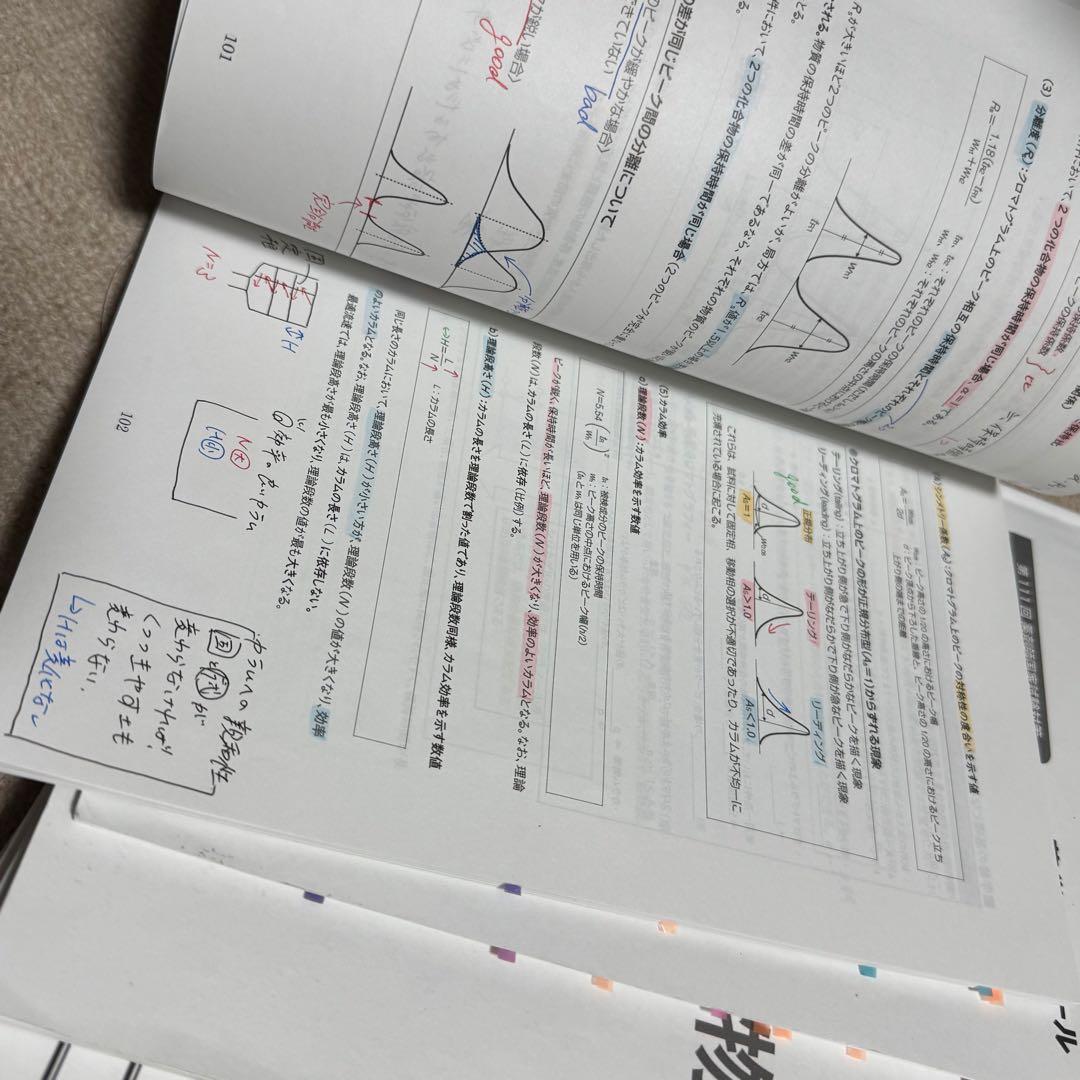 (3) 分離度(Rs):クロマトグラム上のピーク相互の保持時間とそれぞれのピーク
において、2つの化合物の保持時間が同じ場合、α=1である。
Rs = 1.18(tR2−tR1) / W h1 + W h2
tR1、tR2:それぞれのピークの保持時間
Wh1、Wh2:それぞれのピークの高さの中点
tR1
Wh1
tR2
Rsが大きいほど2つのピークの分離がよいが、局方では、Rs値が1.5以上の
される。物質の保持時間の差が同一であるなら、それぞれの物質のピーク
とる。
件において、2つの化合物の保持時間が同じ場合(2つのピークが完全に
る。
の差が同じピーク間の分離について
のピークが緩やかな場合〉
できていない
bad
が鋭い場合〉
good
101
第111回
シンメトリー係数(As):クロマトグラム上のピークの対称性の度合いを示す値
As = W0.05h / 2a
W0.05h:ピーク高さの1/20の高さにおけるピーク幅
a:ピーク頂点から下ろした垂線と、ピーク高さの1/20の高さにおけるピーク立ち
上がり側の端までの距離
●クロマトグラム上のピークの形が正規分布型(As=1)からずれる現象
テーリング(tailing):立ち上がり側が急で下り側がなだらかなピークを描く現象
リーディング(leading):立ち上がり側がなだらかで下り側が急なピークを描く現象
good
正規分布
テーリング
リーディング
As=1
As>1.0
As<1.0
これらは、試料に対して固定相、移動相の選択が不適切であったり、カラムが不均一に
充填されている場合に起こる。
(5)カラム効率
a)理論段数(N):カラム効率を示す数値
N=5.54 (tR/Wh)²
tR:被検成分のピークの保持時間
Wh:ピーク高さの中点におけるピーク幅(h/2)
(tRとWhは同じ単位を用いる)
ピークが鋭く、保持時間が長いほど、理論段数(N)が大きくなり、効率のよいカラムとなる。なお、理論
段数(N)は、カラムの長さ(L)に依存(比例)する。
b)理論段高さ(H):カラムの長さを理論段数で割った値であり、理論段数同様、カラム効率を示す数値
⇔H= L/N
L:カラムの長さ
同じ長さのカラムにおいて、理論段高さ(H)が小さい方が、理論段数(N)の値が大きくなり、効率
のよいカラムとなる。なお、理論段高さ(H)は、カラムの長さ(L)に依存しない。
最適流速では、理論段高さが最も小さくなり、理論段数の値が最も大きくなる。
固定相
N=3
H
効率のよいカラム
N大
H小
カラムへの親和性
固と移が
変わらなければ
くっつきやすさも
変わらない
↳Hは変化なし
102